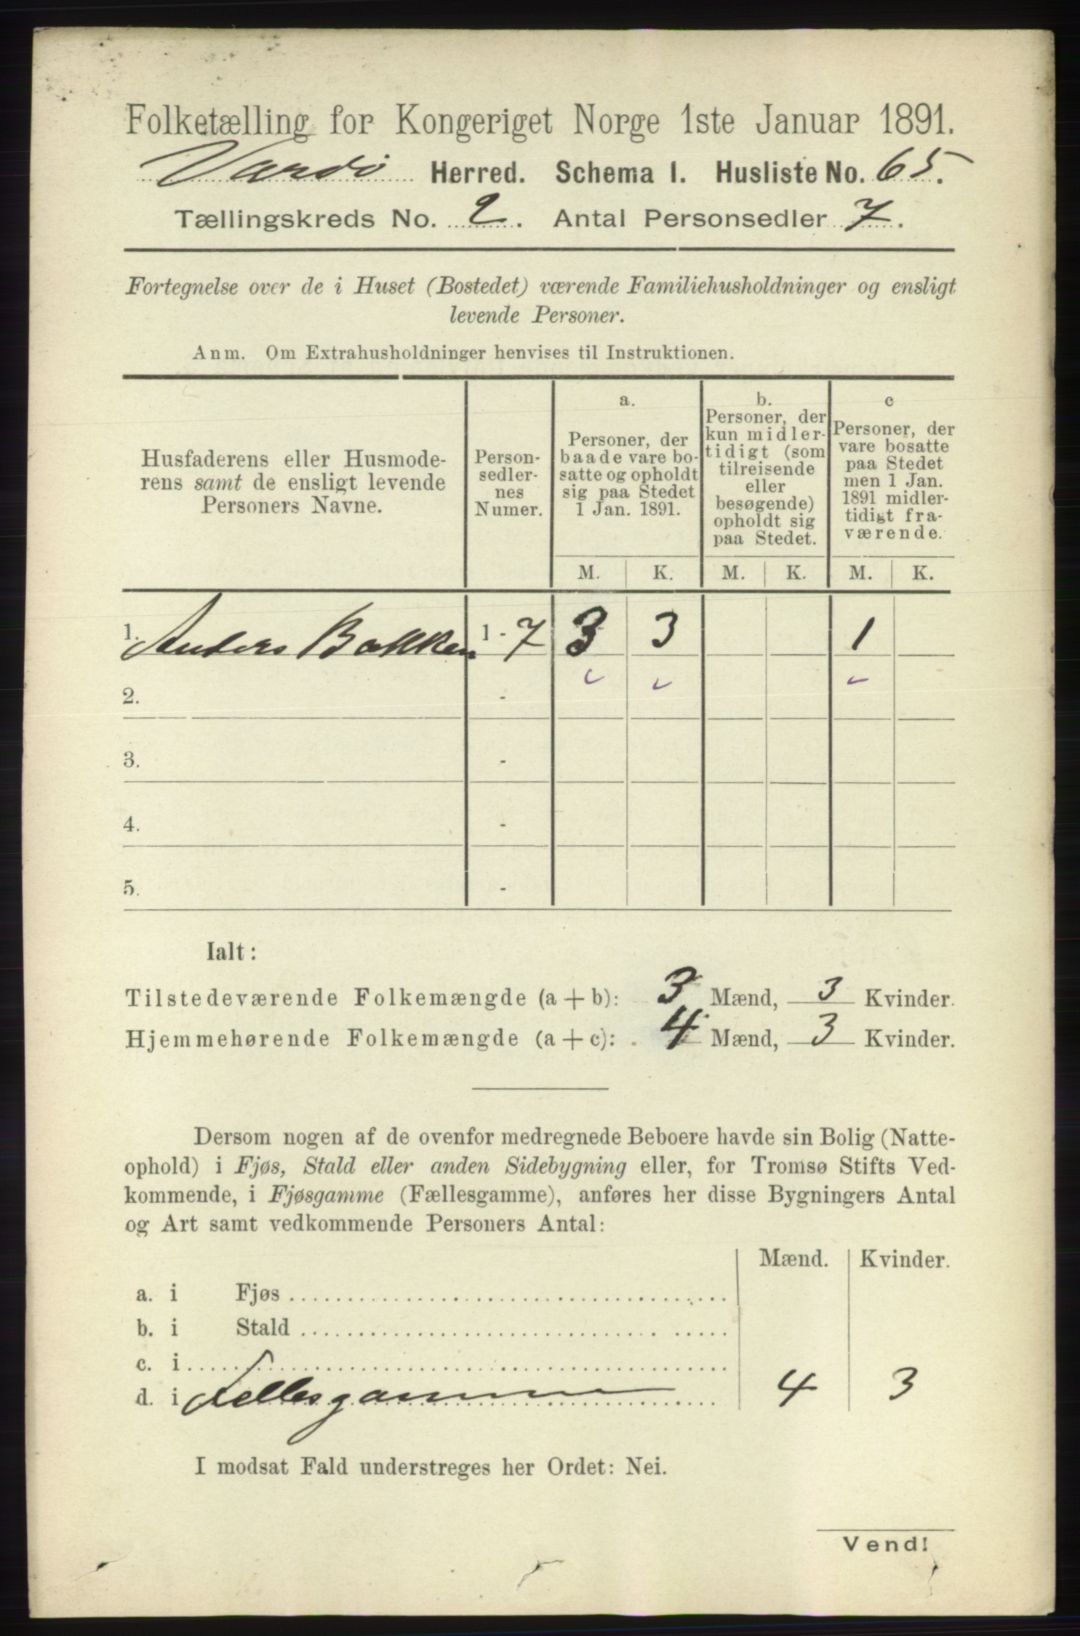 Folketælling for Kongeriget Norge 1ste Januar 1891.
Vardø Herred. Schema I. Husliste No. 65.
Tællingskreds No. 2. Antal Personsedler 7.
Fortegnelse over de i Huset (Bostedet) værende Familiehusholdninger og ensligt
levende Personer.
Anm. Om Extrahusholdninger henvises til Instruktionen.
Husfaderens eller Husmode-
rens samt de ensligt levende
Personers Navne.
Person-
sedler-
nes
Numer.
a.
Personer, der
baade vare bo-
satte og opholdt
sig paa Stedet
1 Jan. 1891.
b.
Personer, der
kun midler-
tidigt (som
tilreisende
eller
besøgende)
opholdt sig
paa Stedet.
c
Personer, der
vare bosatte
paa Stedet
men 1 Jan.
1891 midler-
tidigt fra-
værende.
M. K. M. K. M. K.
1. Anders Bakken. 1 - 7 3 3 1
2. -
3. -
4. -
5. -
Ialt:
Tilstedeværende Folkemængde (a + b): 3 Mænd, 3 Kvinder.
Hjemmehørende Folkemængde (a + c): 4 Mænd, 3 Kvinder.
Dersom nogen af de ovenfor medregnede Beboere havde sin Bolig (Natte-
ophold) i Fjøs, Stald eller anden Sidebygning eller, for Tromsø Stifts Ved-
kommende, i Fjøsgamme (Fællesgamme), anføres her disse Bygningers Antal
og Art samt vedkommende Personers Antal:
Mænd. Kvinder.
a. i Fjøs
b. i Stald
c. i
d. i Fellesgamme 4 3
I modsat Fald understreges her Ordet: Nei.
Vend!